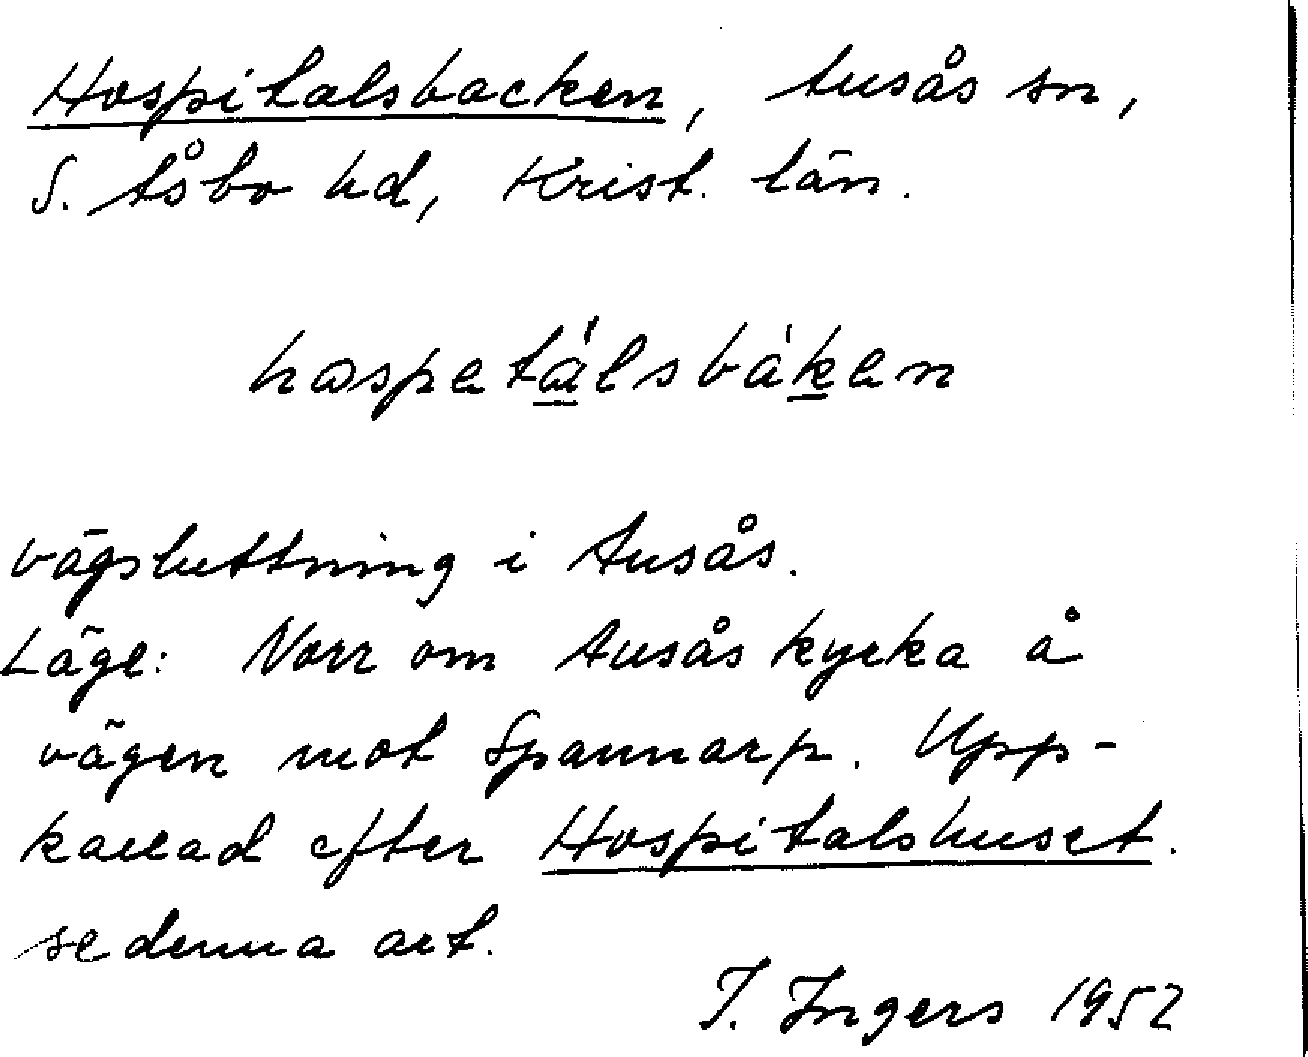 Hospitalsbacken, Ausås sn,
S. Åsbo hd, Krist. län.
hospetálsbákən
vägsluttning i Ausås.
Läge: Norr om Ausås kyrka å
vägen mot Spannarp. Upp-
kallad efter Hospitalshuset.
se denna art.
I. Ingers 1952